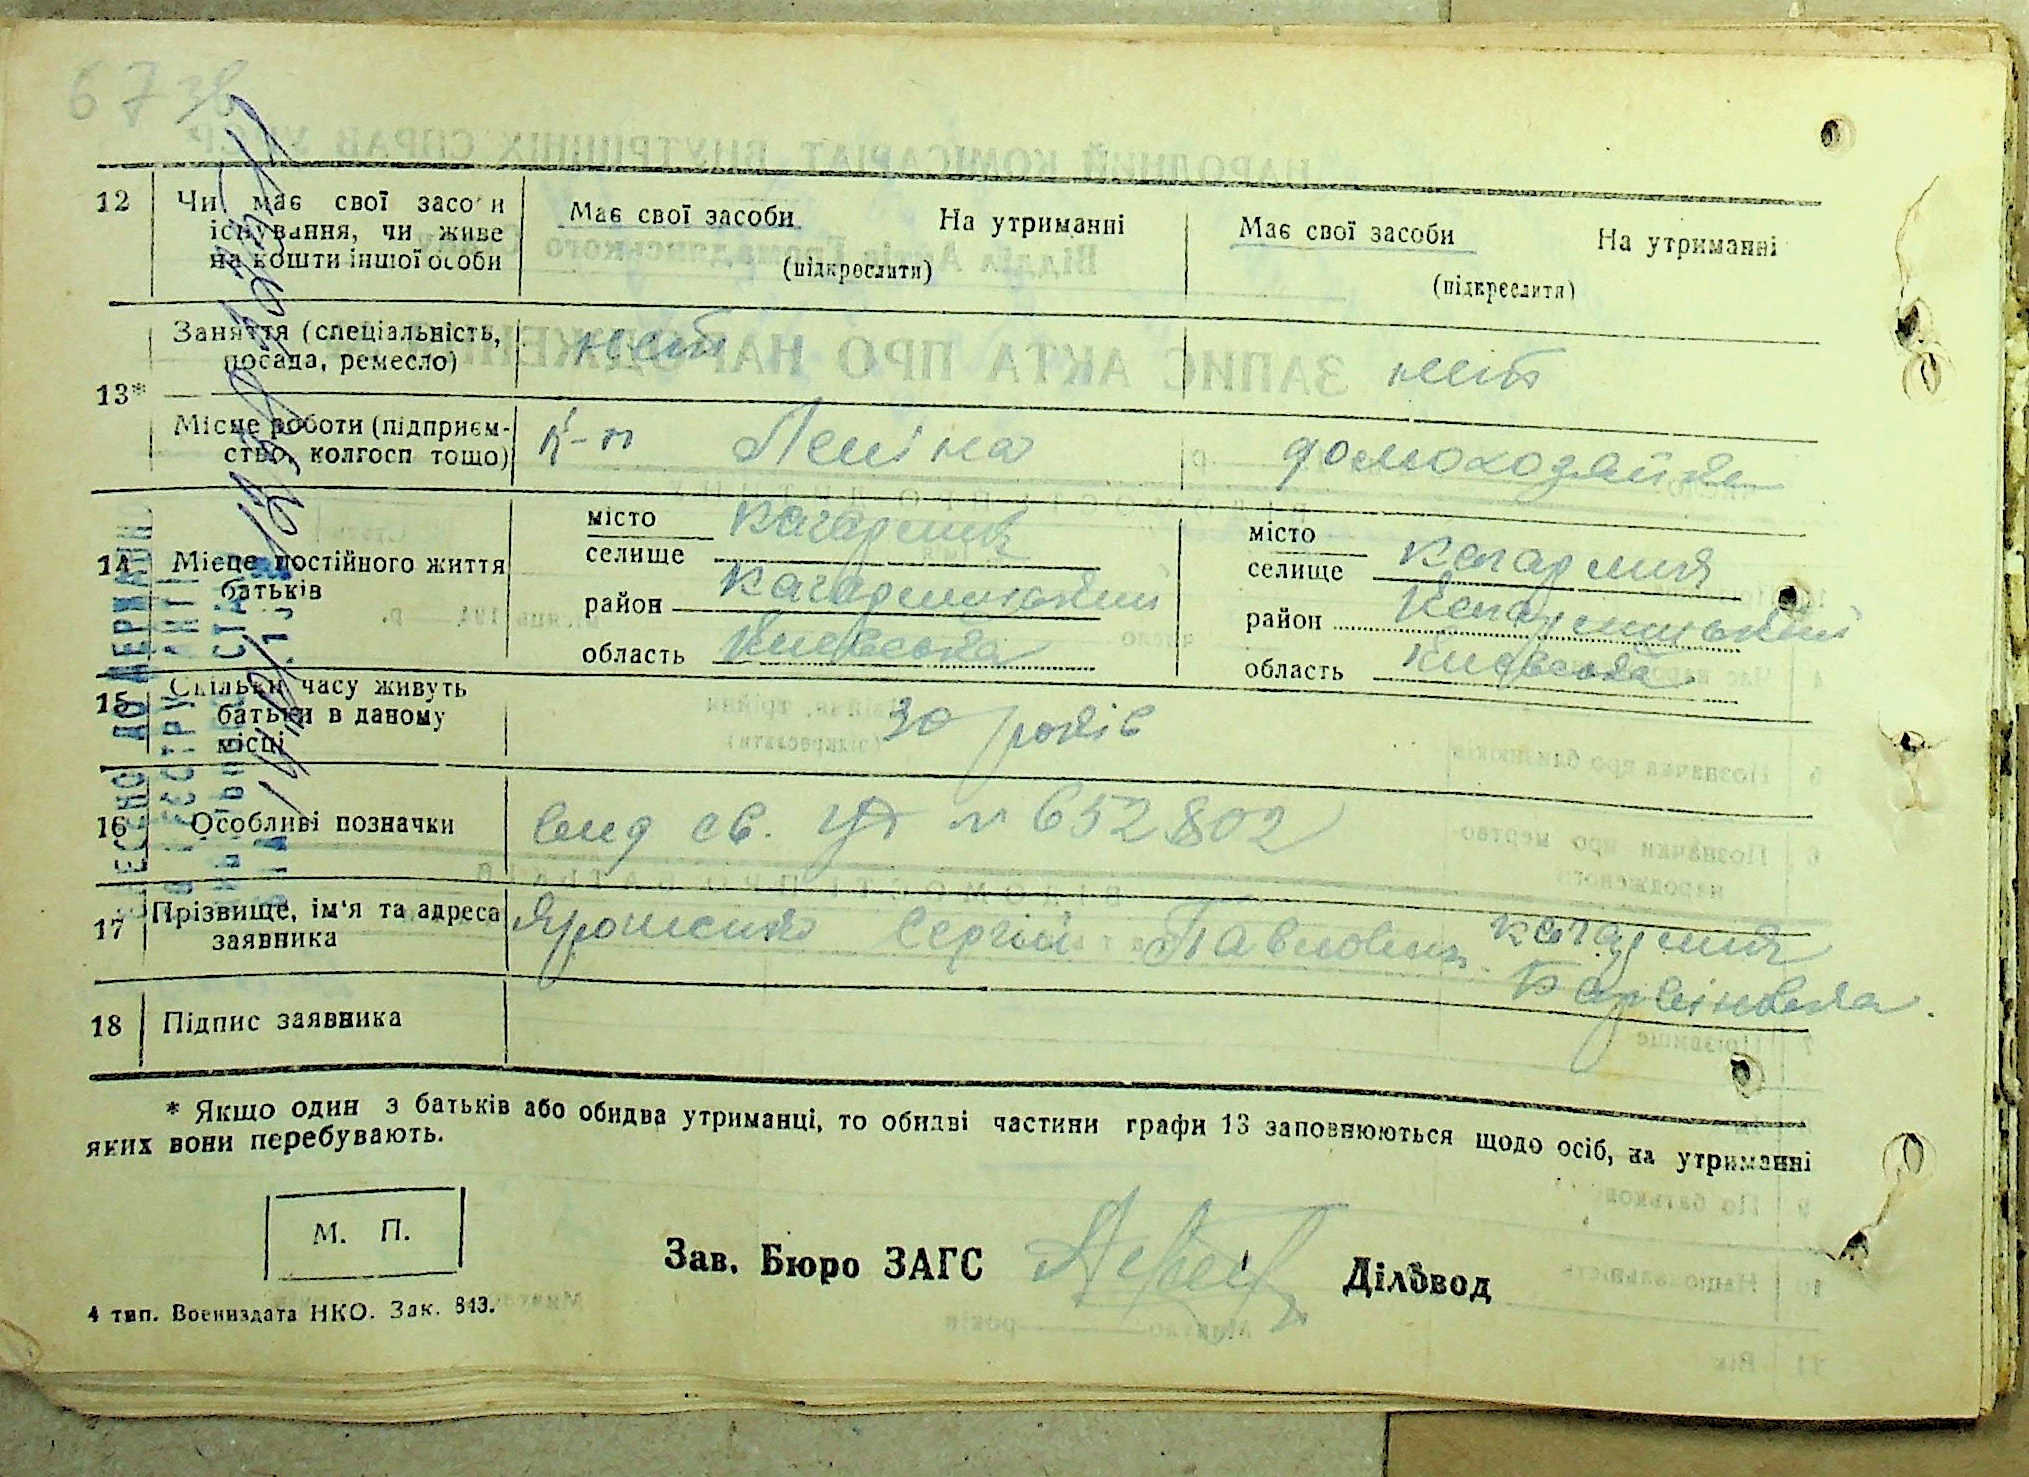 67 зв
12 Чи має свої засо и
існування, чи живе
на кошти іншої особи
Має свої засоби На утриманні
(підкреслити)
Має свої засоби На утриманні
(підкреслити)
13*
Заняття (спеціальність,
посада, ремесло)
нет
нет
Місце роботи (підприєм-
ство, колгосп тощо)
к-п Леніна
домохозяйка
14 Місце постійного життя
батьків
місто
селище Кагарлик
район Кагарлицький
область Київська
місто
селище Кагарлик
район Кагарлицький
область Київська
15 Скільки часу живуть
батьки в даному
місці
30 років
16 Особливі позначки
вид св. № 652802
17 Прізвище, ім'я та адреса
заявника
Ярошенко Сергій Павлович Кагарлик
18 Підпис заявника
* Якщо один з батьків або обидва утриманці, то обидві частини графи 13 заповнюються щодо осіб, на утриманні
яких вони перебувають.
М. П.
Зав. Бюро ЗАГС Діловод
4 тип. Воениздата НКО. Зак. 843.